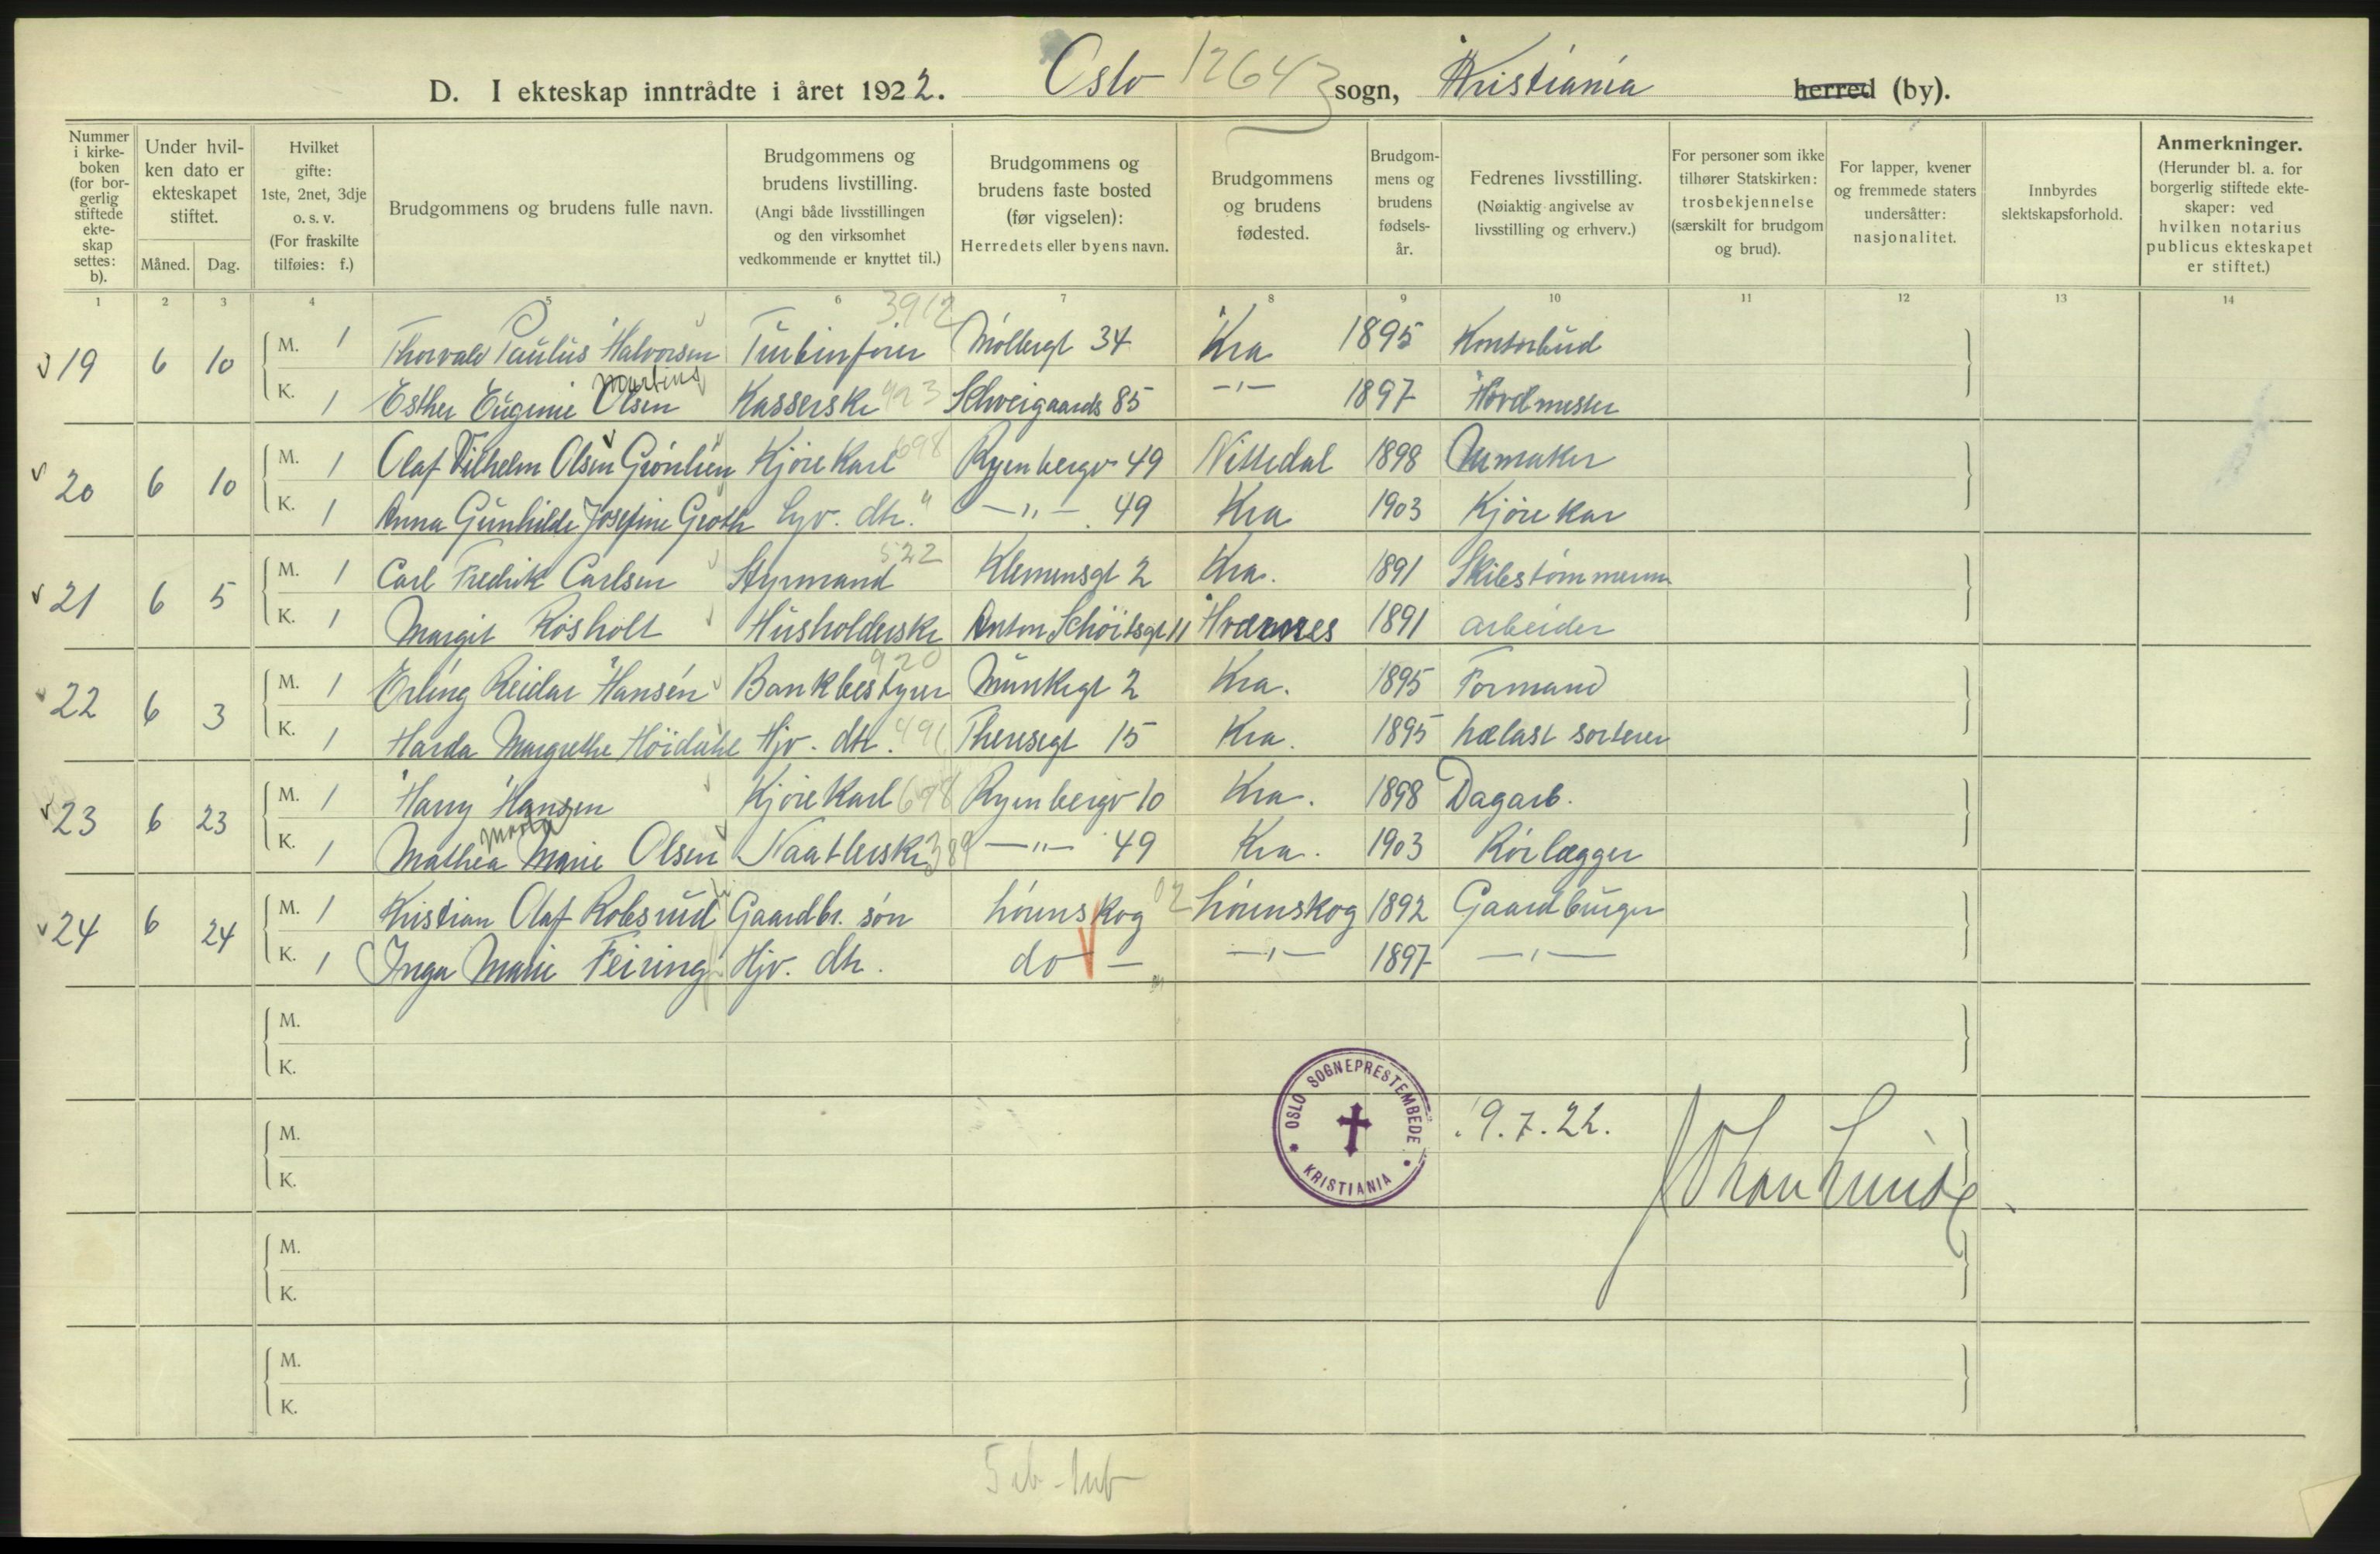 D. I ekteskap inntrådte i året 1922. Oslo 12643 sogn, Kristiania herred (by).
Nummer i kirkeboken (for borgerlig stiftede ekteskap settes: b).
Under hvilken dato er ekteskapet stiftet.
Måned. Dag.
Hvilket gifte: 1ste, 2net, 3dje o. s. v. (For fraskilte tilføies: f.)
Brudgommens og brudens fulle navn.
Brudgommens og brudens livstilling. (Angi både livsstillingen og den virksomhet vedkommende er knyttet til.)
Brudgommens og brudens faste bosted (før vigselen): Herredets eller byens navn.
Brudgommens og brudens fødested.
Brudgommens og brudens fødselsår.
Fedrenes livsstilling. (Nøiaktig angivelse av livsstilling og erhverv.)
For personer som ikke tilhører Statskirken: trosbekjennelse (særskilt for brudgom og brud).
For lapper, kvener og fremmede staters undersåtter: nasjonalitet.
Innbyrdes slektskapsforhold.
Anmerkninger. (Herunder bl. a. for borgerlig stiftede ekteskaper: ved hvilken notarius publicus ekteskapet er stiftet.)
1 2 3 4 5 6 7 8 9 10 11 12 13 14
3912
19 6 10 M. 1 Thorvald Paulus Halvorsen Turbinfører Møllergt 34 Kra 1895 Kontorbud
Martins
K. 1 Esther Eugenie Olsen Kasserske 923 Schweigaards 85 -"- 1897 Hovedmester
20 6 10 M. 1 Olaf Vilhelm Olsen Grønlien Kjørekarl 698 Ryenbergv 49 Nittedal 1898 Urmaker
K. 1 Anna Gunhilde Josefine Groth Hjv. dtr. " -"- 49 Kra 1903 Kjørekar
522
21 6 5 M. 1 Carl Fredrik Carlsen Styrmand Klemensgt 2 Kra. 1891 Skibstømmerm
K. 1 Margit Røsholt Husholderske Anton Schøitsgt 11 1891 arbeider
920
22 6 3 M. 1 Erling Reidar Hansen Bankbestyrer Munkegt 2 Kra. 1895 Formand
K. 1 Harda Margrethe Høidahl Hjv. dtr. 491 Theresegt 15 Kra. 1895 sorterer
23 6 23 M. 1 Harry Hansen Kjørekarl 698 Ryenbergv 10 Kra. 1898 Dagarb.
Marta
K. 1 Mathea Marie Olsen Naatlerske 389 -"- 49 Kra. 1903 Rørlægger
24 6 24 M. 1 Kristian Olaf Robsrud Gaardbr. søn Lørenskog 02 Lørenskog 1892 Gaardbruger
K. 1 Inga Marie Feiring Hjv. dtr. do - -"- 1897 -"-
M.
K.
M.
K.
OSLO SOGNEPRESTEMBEDE KRISTIANIA
9.7.22.
Johan Lunde
M.
K.
M.
K.
5 ib - 1ub